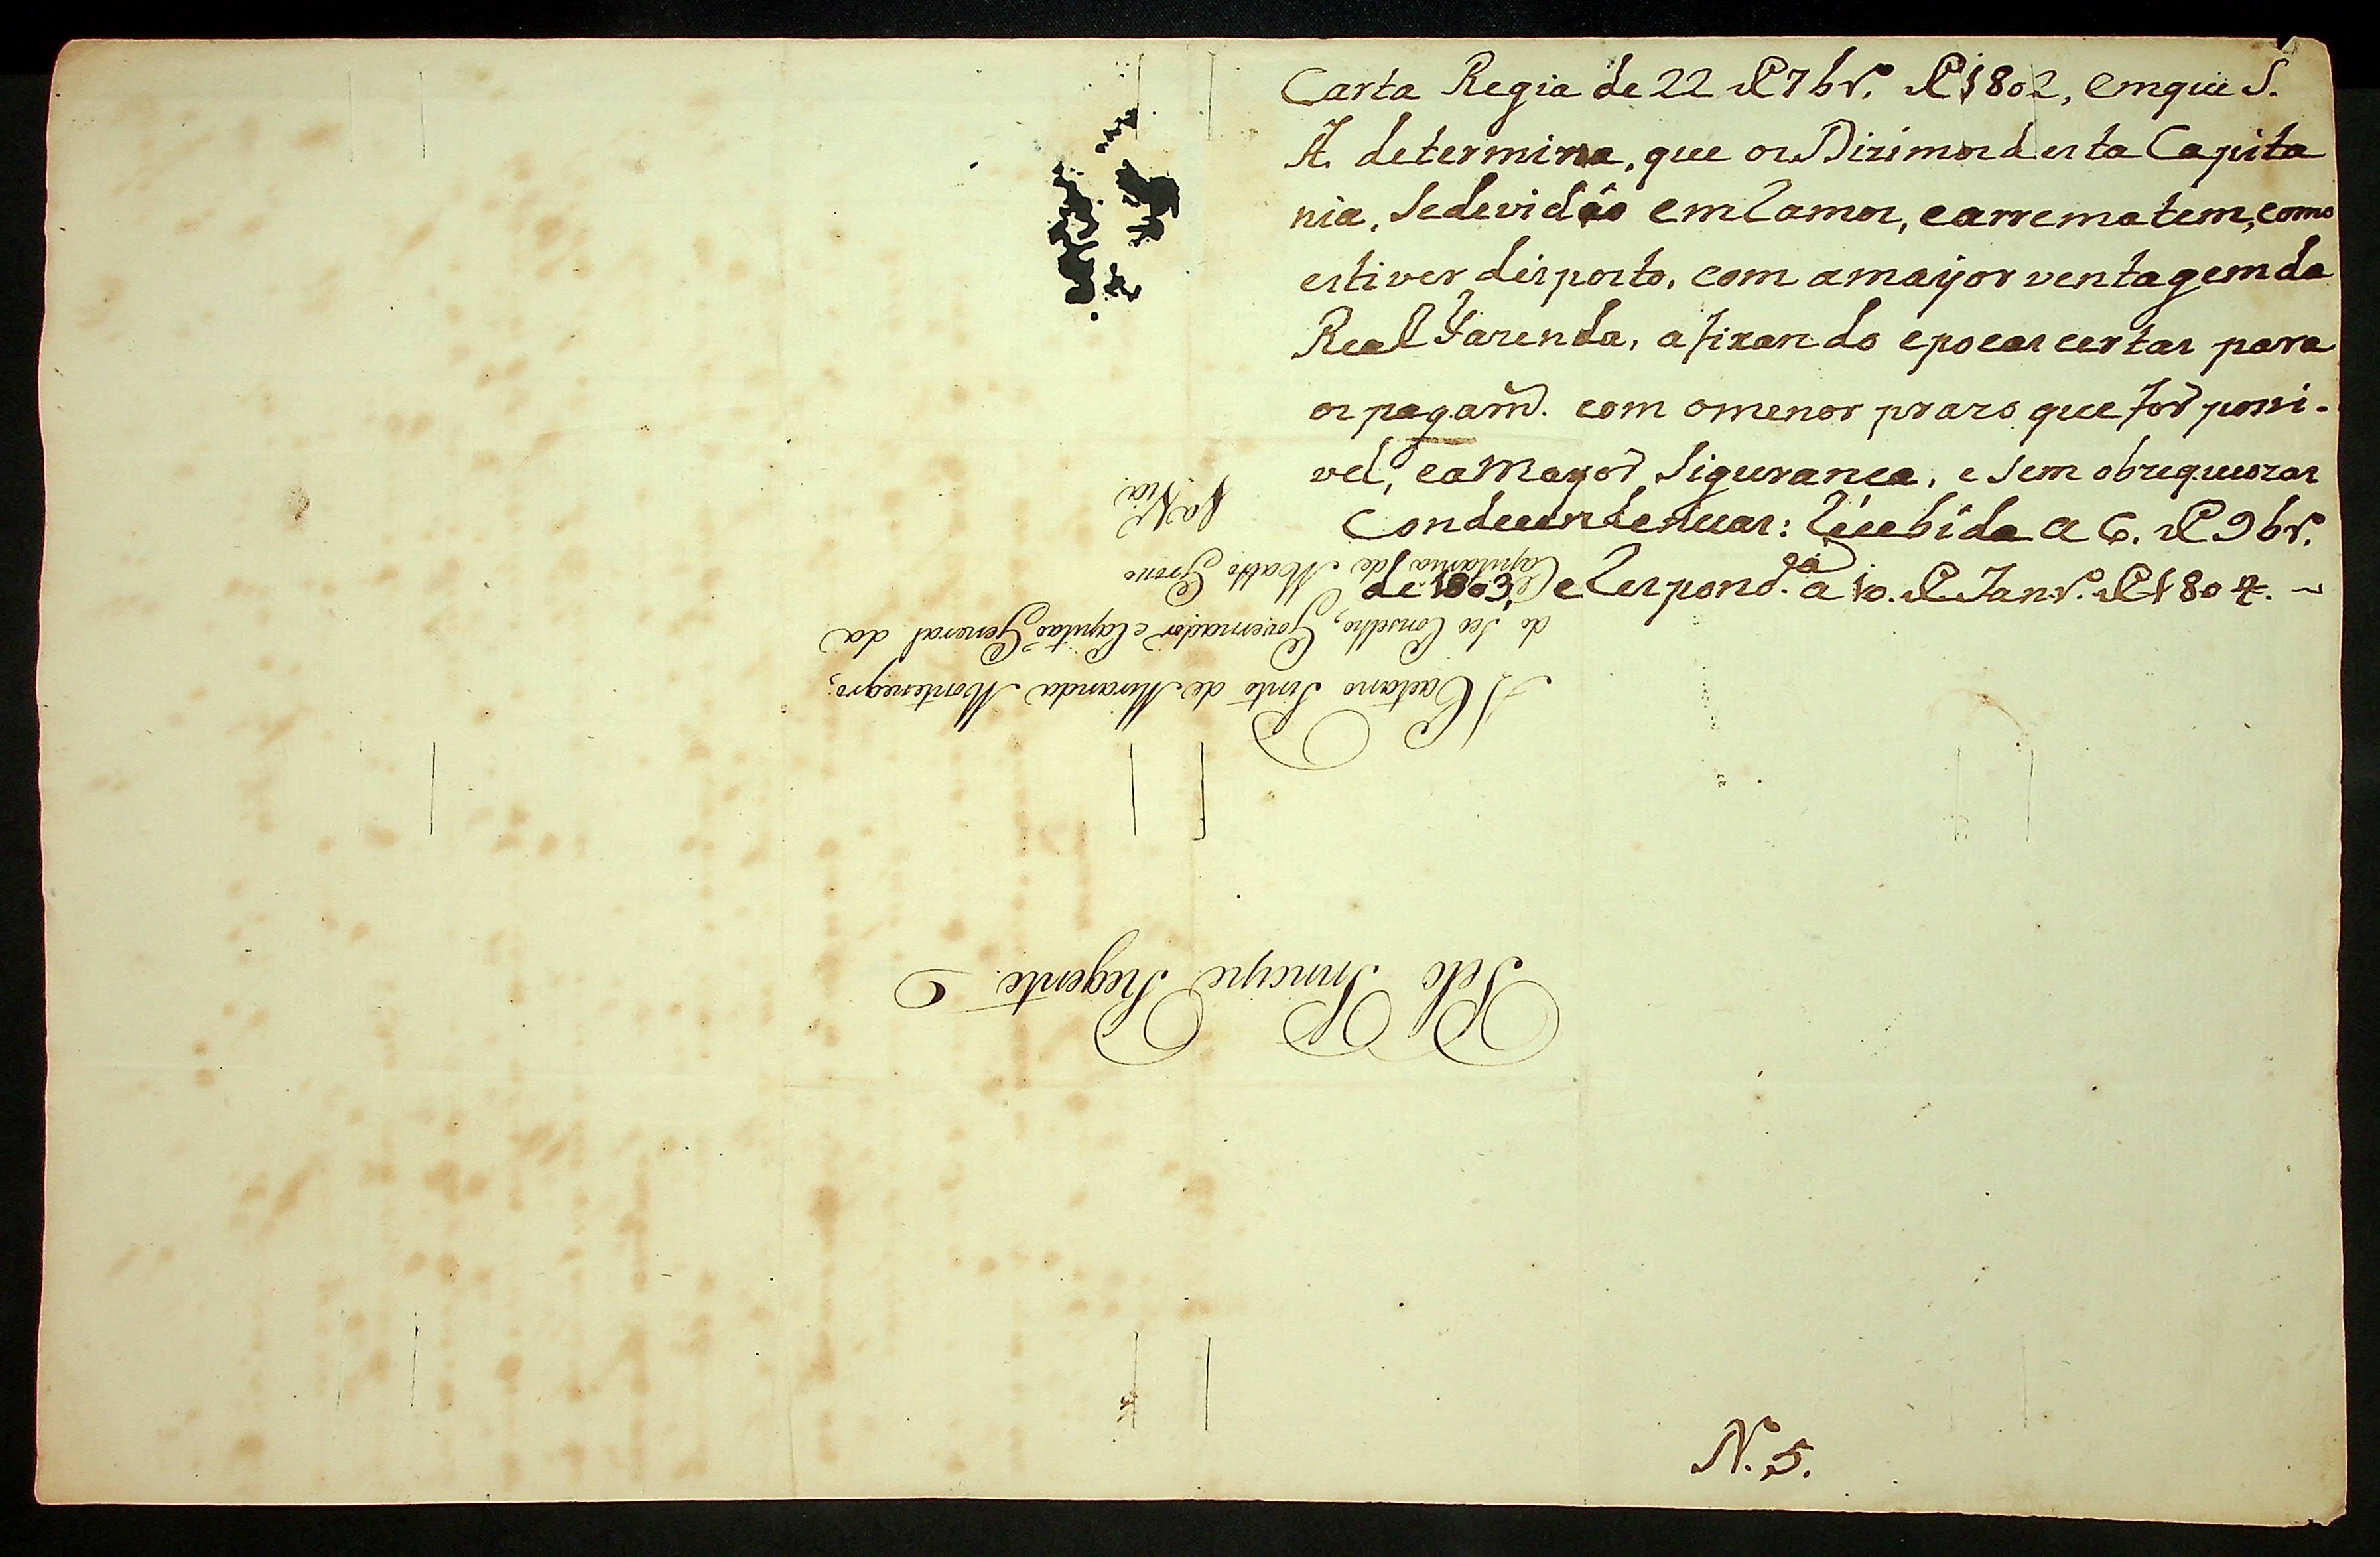 Carta Regia de 22 de 7br.º de 1802, emque S.
A. determina, que os Dizimos desta Capita
nia, sedevidão em Ramos, earrematem, como
estiver disposto, com amayor ventagem da
Real Fazenda, afixando epocas certas para
os pagam.^to com omenor prazo que for possi-
vel, eamayor Sigurança, e sem obzequiozas
Condecendencias: Recebida a 6. de 9br.º
de 1803, e Respond.^da a 10. de Janr.º de 1804.
Pelo Principe Regente
A Caetano Pinto de Miranda Montenegro,
do Seo Conselho, Governador e Capitaõ General da
Capitania de Matto Grosso
1.ª Via.
N. 5.